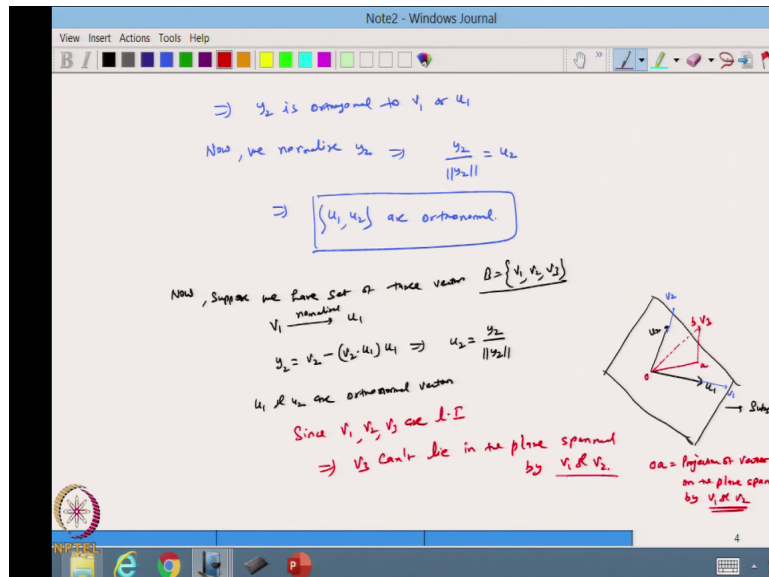 Note2 - Windows Journal
View Insert Actions Tools Help
B I
⇒ y2 is orthogonal to v1 or u1
Now, we normalise y2 ⇒ y2/||y2|| = u2
⇒ {u1, u2} are orthonormal.
Now, suppose we have set of three vector B = {v1, v2, v3}
v1 normalise→ u1
y2 = v2 - (v2·u1) u1 ⇒ u2 = y2/||y2||
u1 & u2 are orthonormal vector
Since v1, v2, v3 are L.I
⇒ v3 can't lie in the plane spanned
by v1 & v2.
v2
u2
b v3
a
0
u1
v1
→ Subs
oa = Projection of vector
on the plane span
by v1 & v2
4
NPTEL